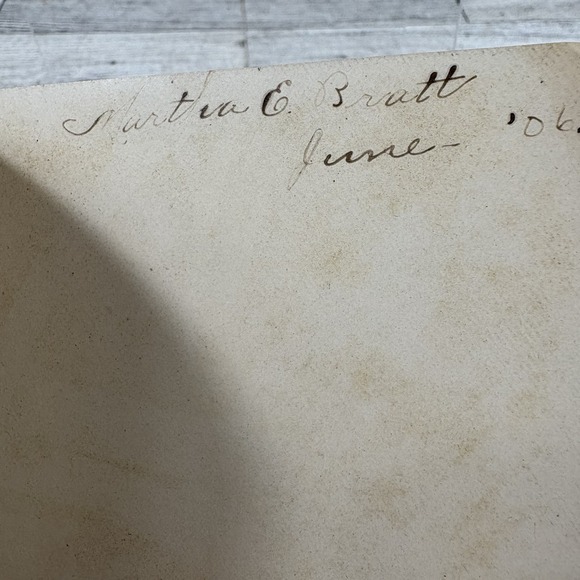 Martha E. Bratt
June - '06.